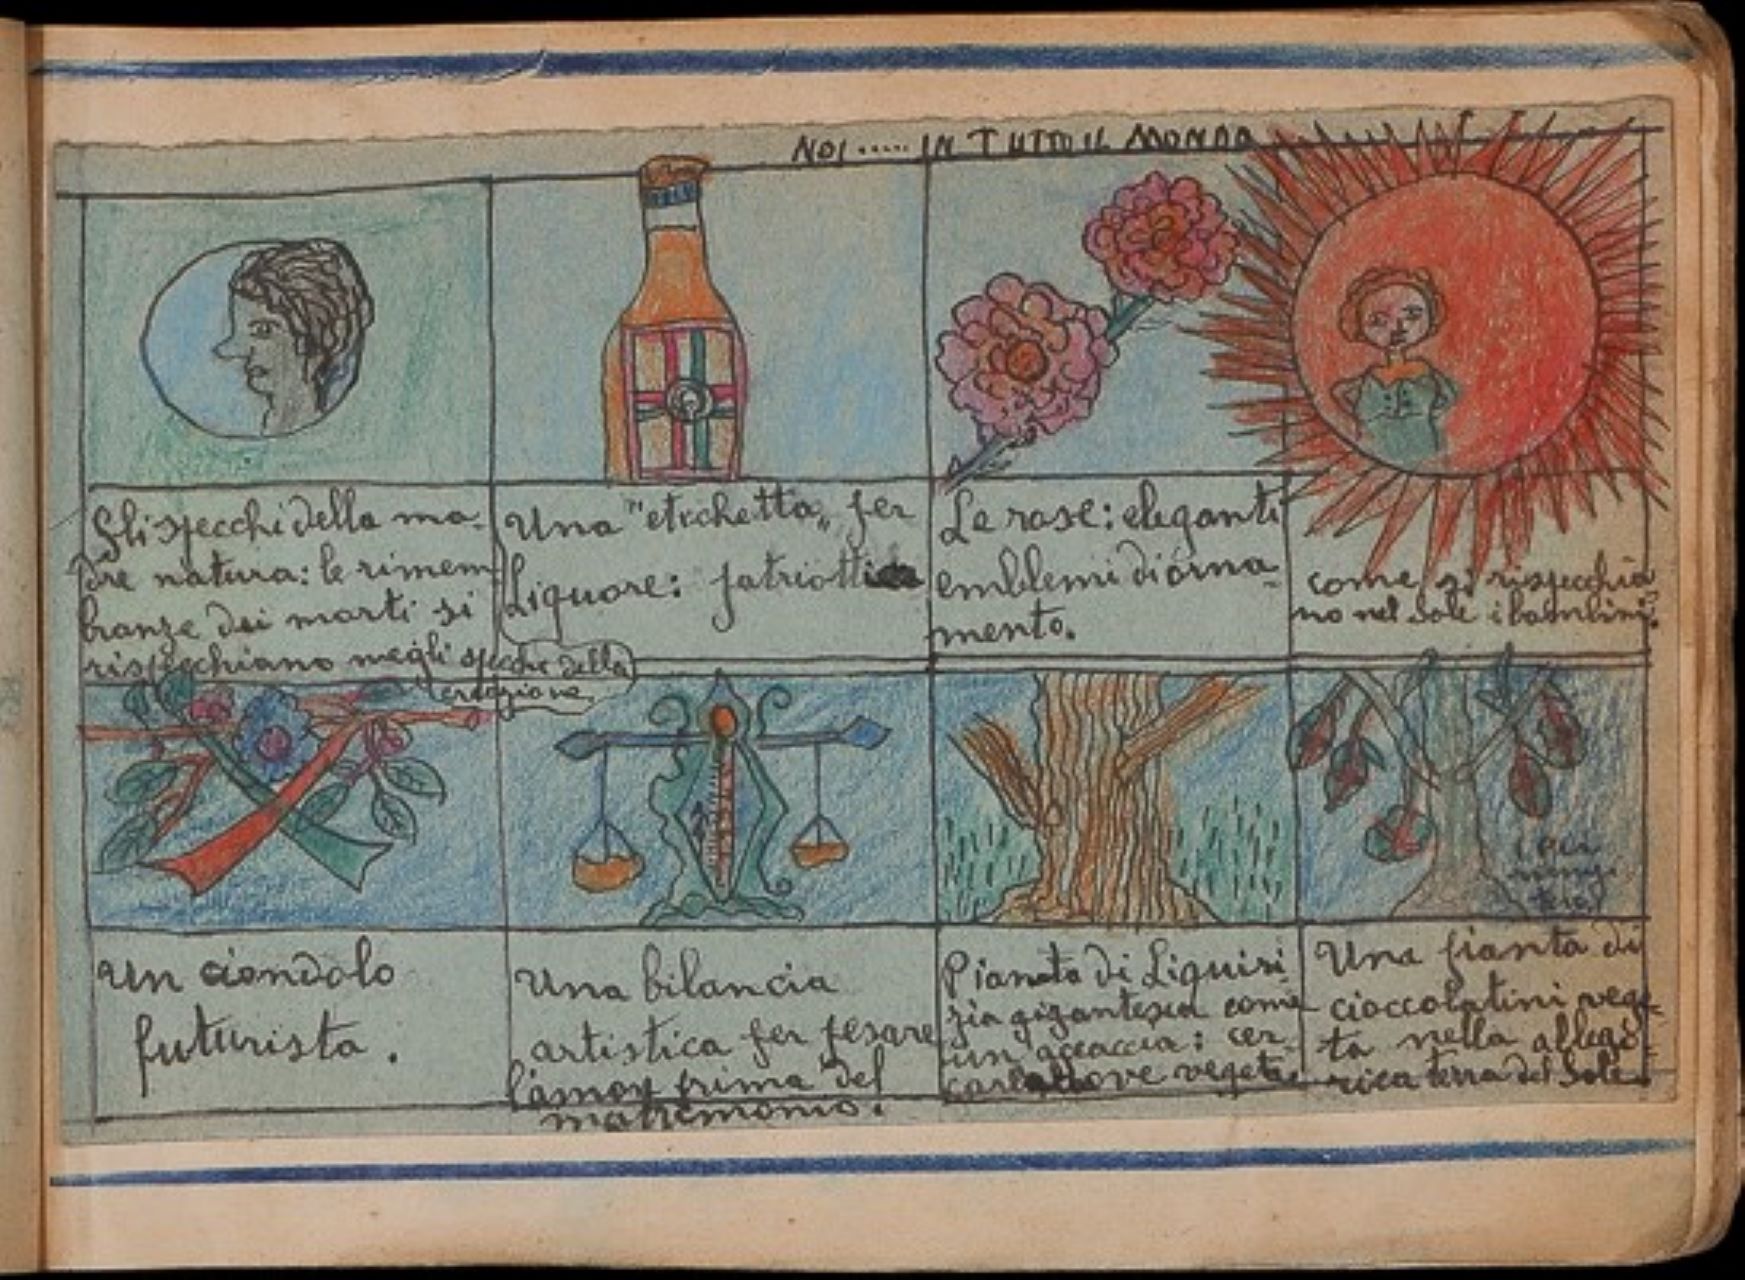 NOI ..... IN TUTTO IL MONDO
Gli specchi della ma-
dre natura: le rimem
branze dei morti si
rispecchiano negli specchi della
creazione
Una "etichetta" per
Liquore: patriottica
Le rose: eleganti
emblemi di orna-
mento.
come si rispecchia
no nel Sole i bambini?
Un ciondolo
futurista.
Una bilancia
artistica per pesare
l'amor prima del
matrimonio.
Pianta di Liquiri
zia gigantesca come
un accaccia: cer-
carla ove vegeta
Una pianta di
cioccolatini vege-
ta nella allego-
rica terra del Sole.